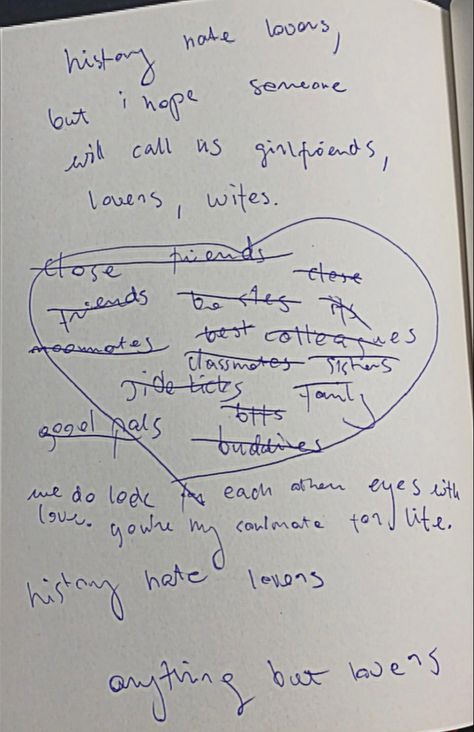 history hate lovers,
but i hope someone
will call us girlfriends,
lovers, wifes.
close friends close
friends
roommates best colleagues
classmates sisters
side kicks family
good pals bffs
buddies
we do look each other eyes with
love. you're my soulmate for life.
history hate lovers
anything but lovers